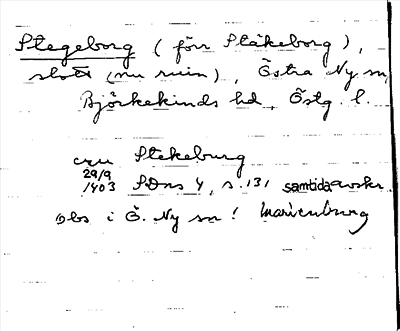 Stegeborg (förr Stäkeborg),
slott (nu ruin), Östra Ny sn,
Björkekinds hd, Östg. l.
Stekeburg
29/9
1403 SDns 1, s. 131 samtida avskr.
Obs i Ö. Ny sn! Marienburg